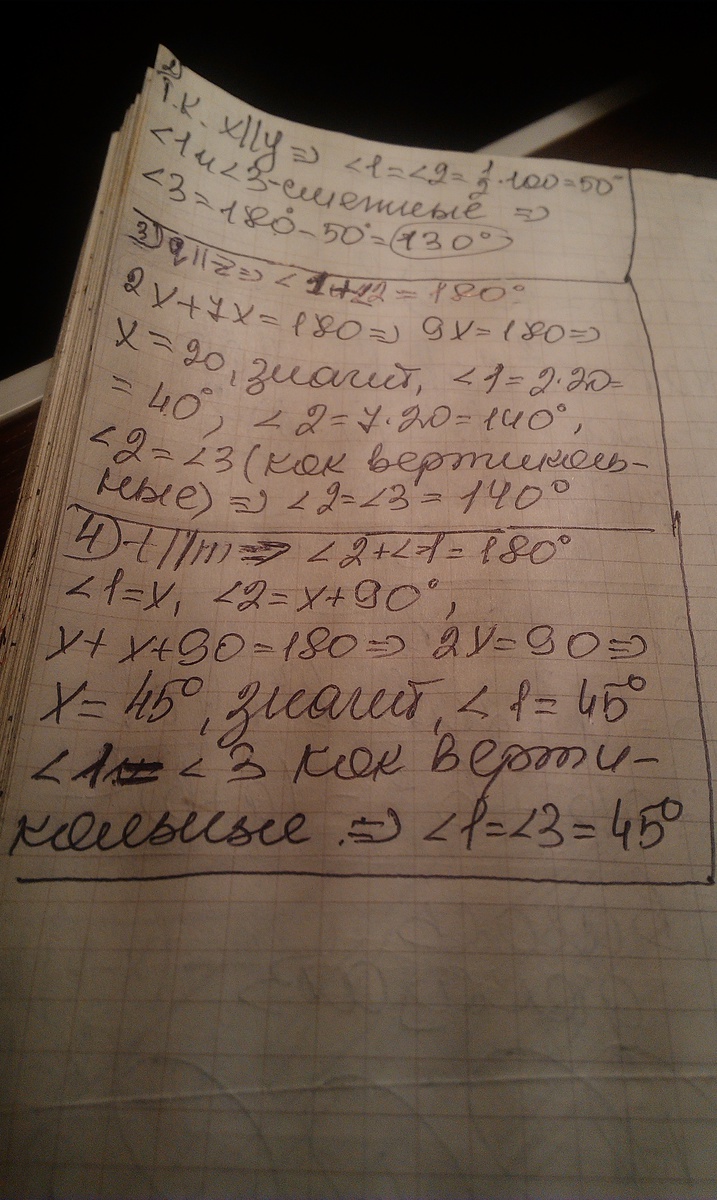 2)
Т.к. x||y ⇒ <1=<2=½·100=50°
<1 и <3-смежные ⇒
<3=180°-50°=130°
3) q||z ⇒ <1+<2=180°
2x+7x=180 ⇒ 9x=180 ⇒
x=20, значит, <1=2·20=
=40°, <2=7·20=140°,
<2=<3 (как вертикаль-
ные) ⇒ <2=<3=140°
4) t||m ⇒ <2+<1=180°
<1=x, <2=x+90°,
x+x+90=180 ⇒ 2x=90 ⇒
x=45°, значит, <1=45°
<1 = <3 как верти-
кальные ⇒ <1=<3=45°